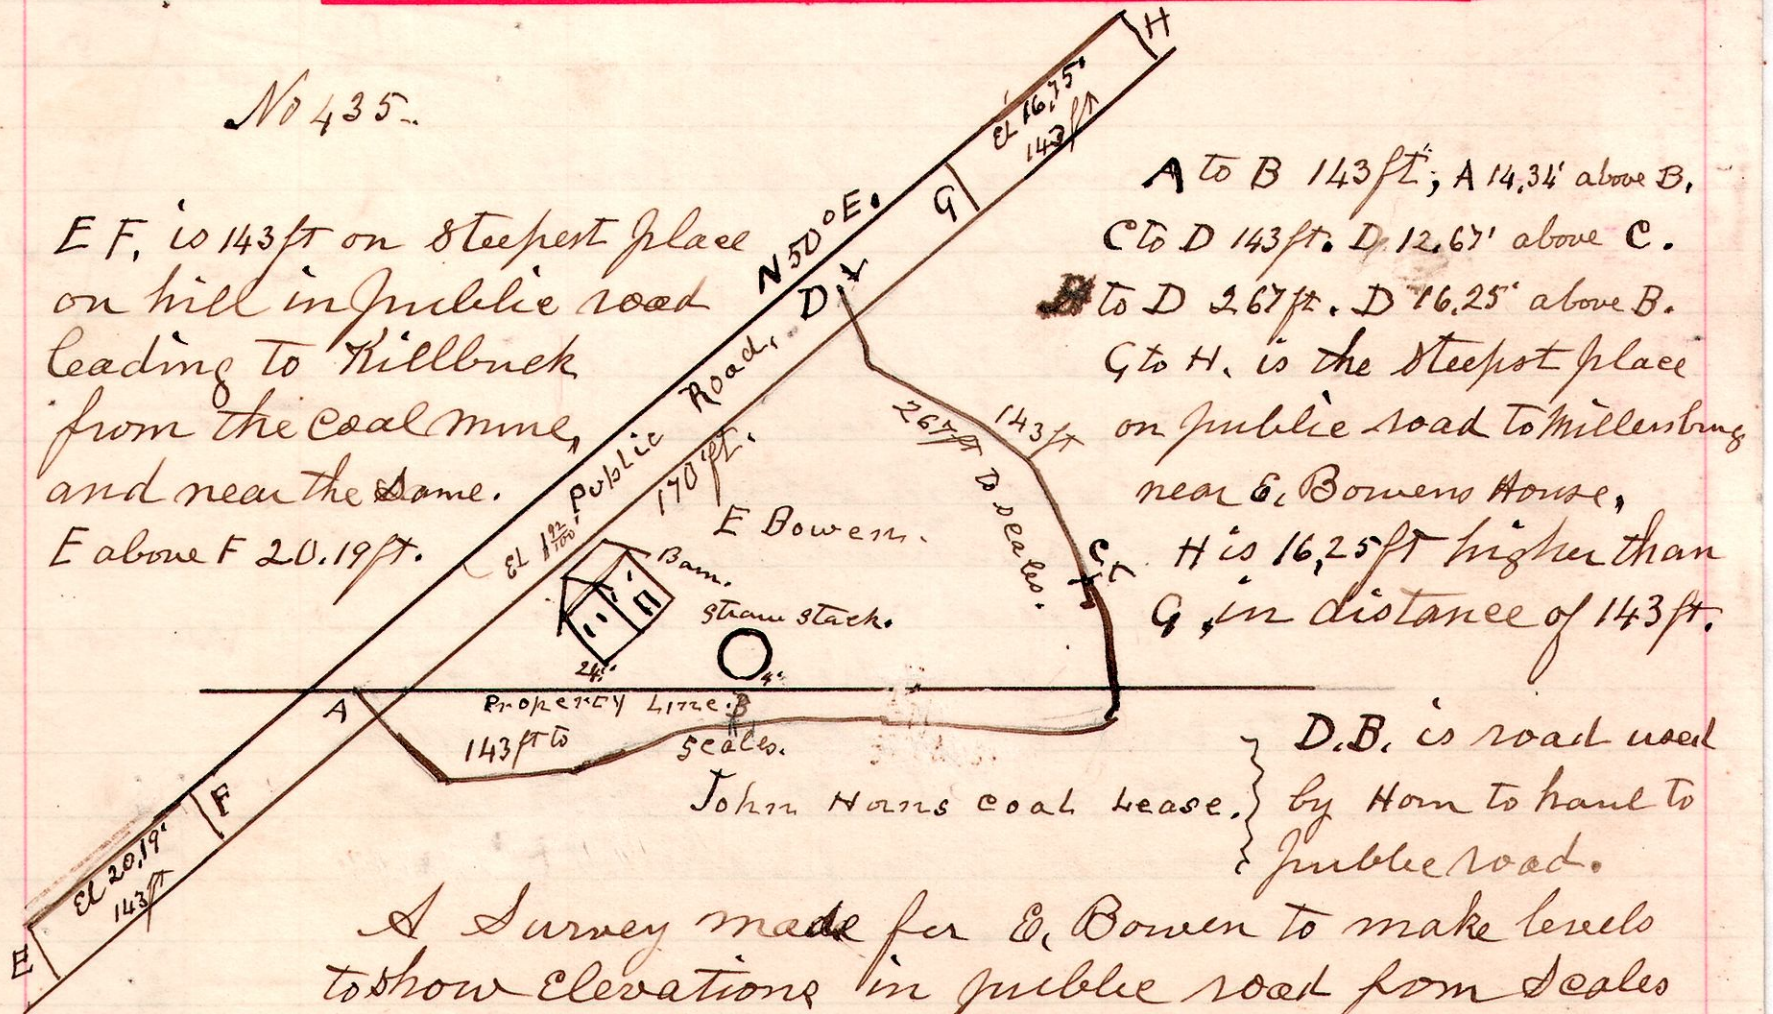 No 435.
E F, is 143 ft on Steepest place
on hill in public road
leading to Killbuck
from the coal mine,
and near the Same.
E above F 20.19 ft.
H
El 16,75'
143 ft
G
N 50° E.
D.
Public Road,
170 ft.
El 1 92/100'
E Bowen.
Barn.
Straw Stack.
24'
4'
267 ft to scales.
143 ft
C
A
Property Line.
B
143 ft to
Scales.
John Horns Coal Lease.
F
El 20,19'
143 ft
E
A to B 143 ft; A 14,34' above B.
C to D 143 ft. D 12.67' above C.
B to D 267 ft. D 16.25' above B.
G to H. is the Steepst place
on public road to Millersburg
near E. Bowens House,
H is 16,25 ft higher than
G, in distance of 143 ft.
D.B. is road used
by Horn to haul to
public road.
A Survey made for E. Bowen to make levels
to show Elevations in public road from Scales